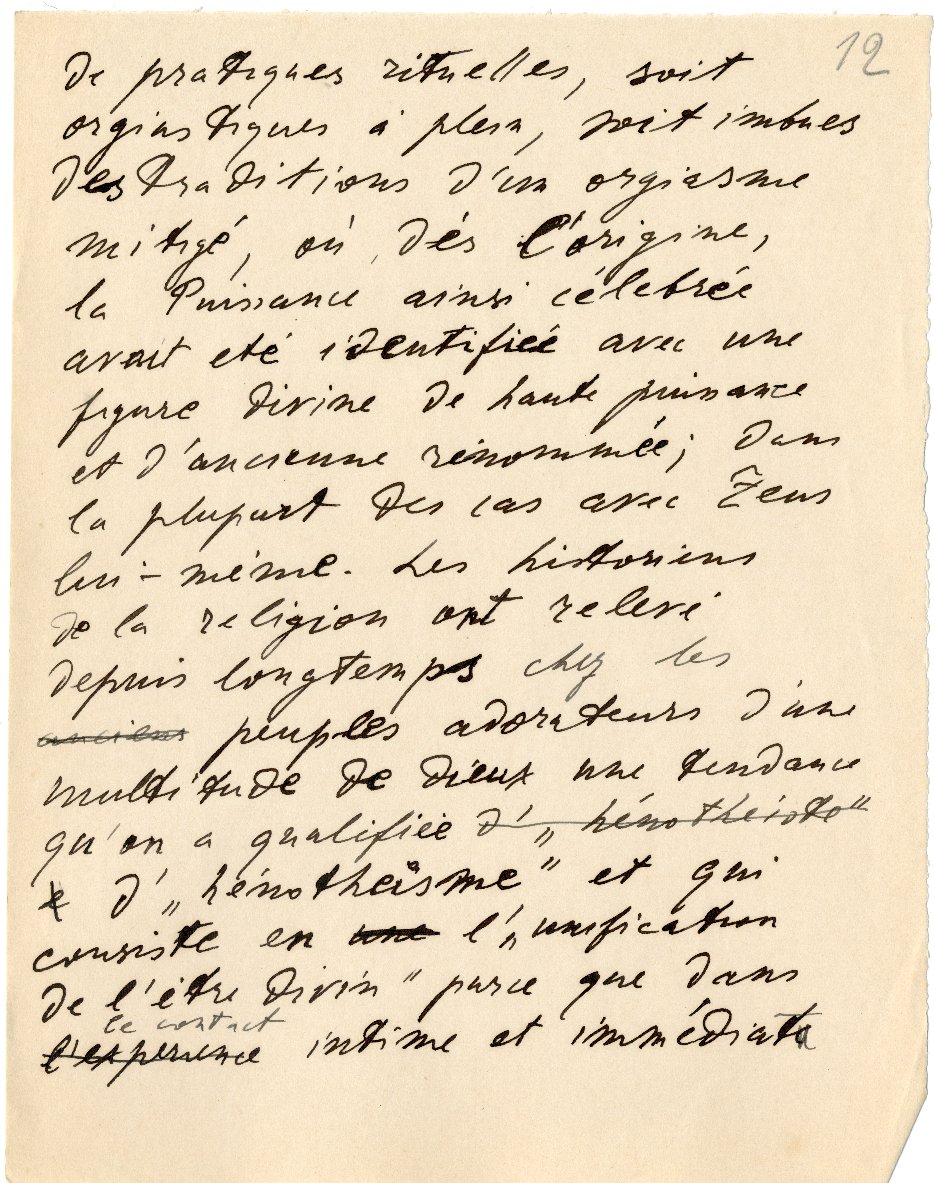 12
de pratiques rituelles, soit
orgiastiques à plein, soit imbues
des traditions d'un orgiasme
mitigé, où dès l'origine,
la Puissance ainsi célébrée
avait eté identifiée avec une
figure divine de haute puissance
et d'ancienne renommée; dans
la plupart des cas avec Zeus
lui-même. Les historiens
de la religion ont relevé
depuis longtemps chez les
anciens peuples adorateurs d'une
multitude de dieux une tendance
qu'on a qualifiée d'„hénothéiste"
d'„hénotheïsme" et qui
consiste en une l'„unification
de l'être divin" parce que dans
le contact
l'expérience intime et immédiat